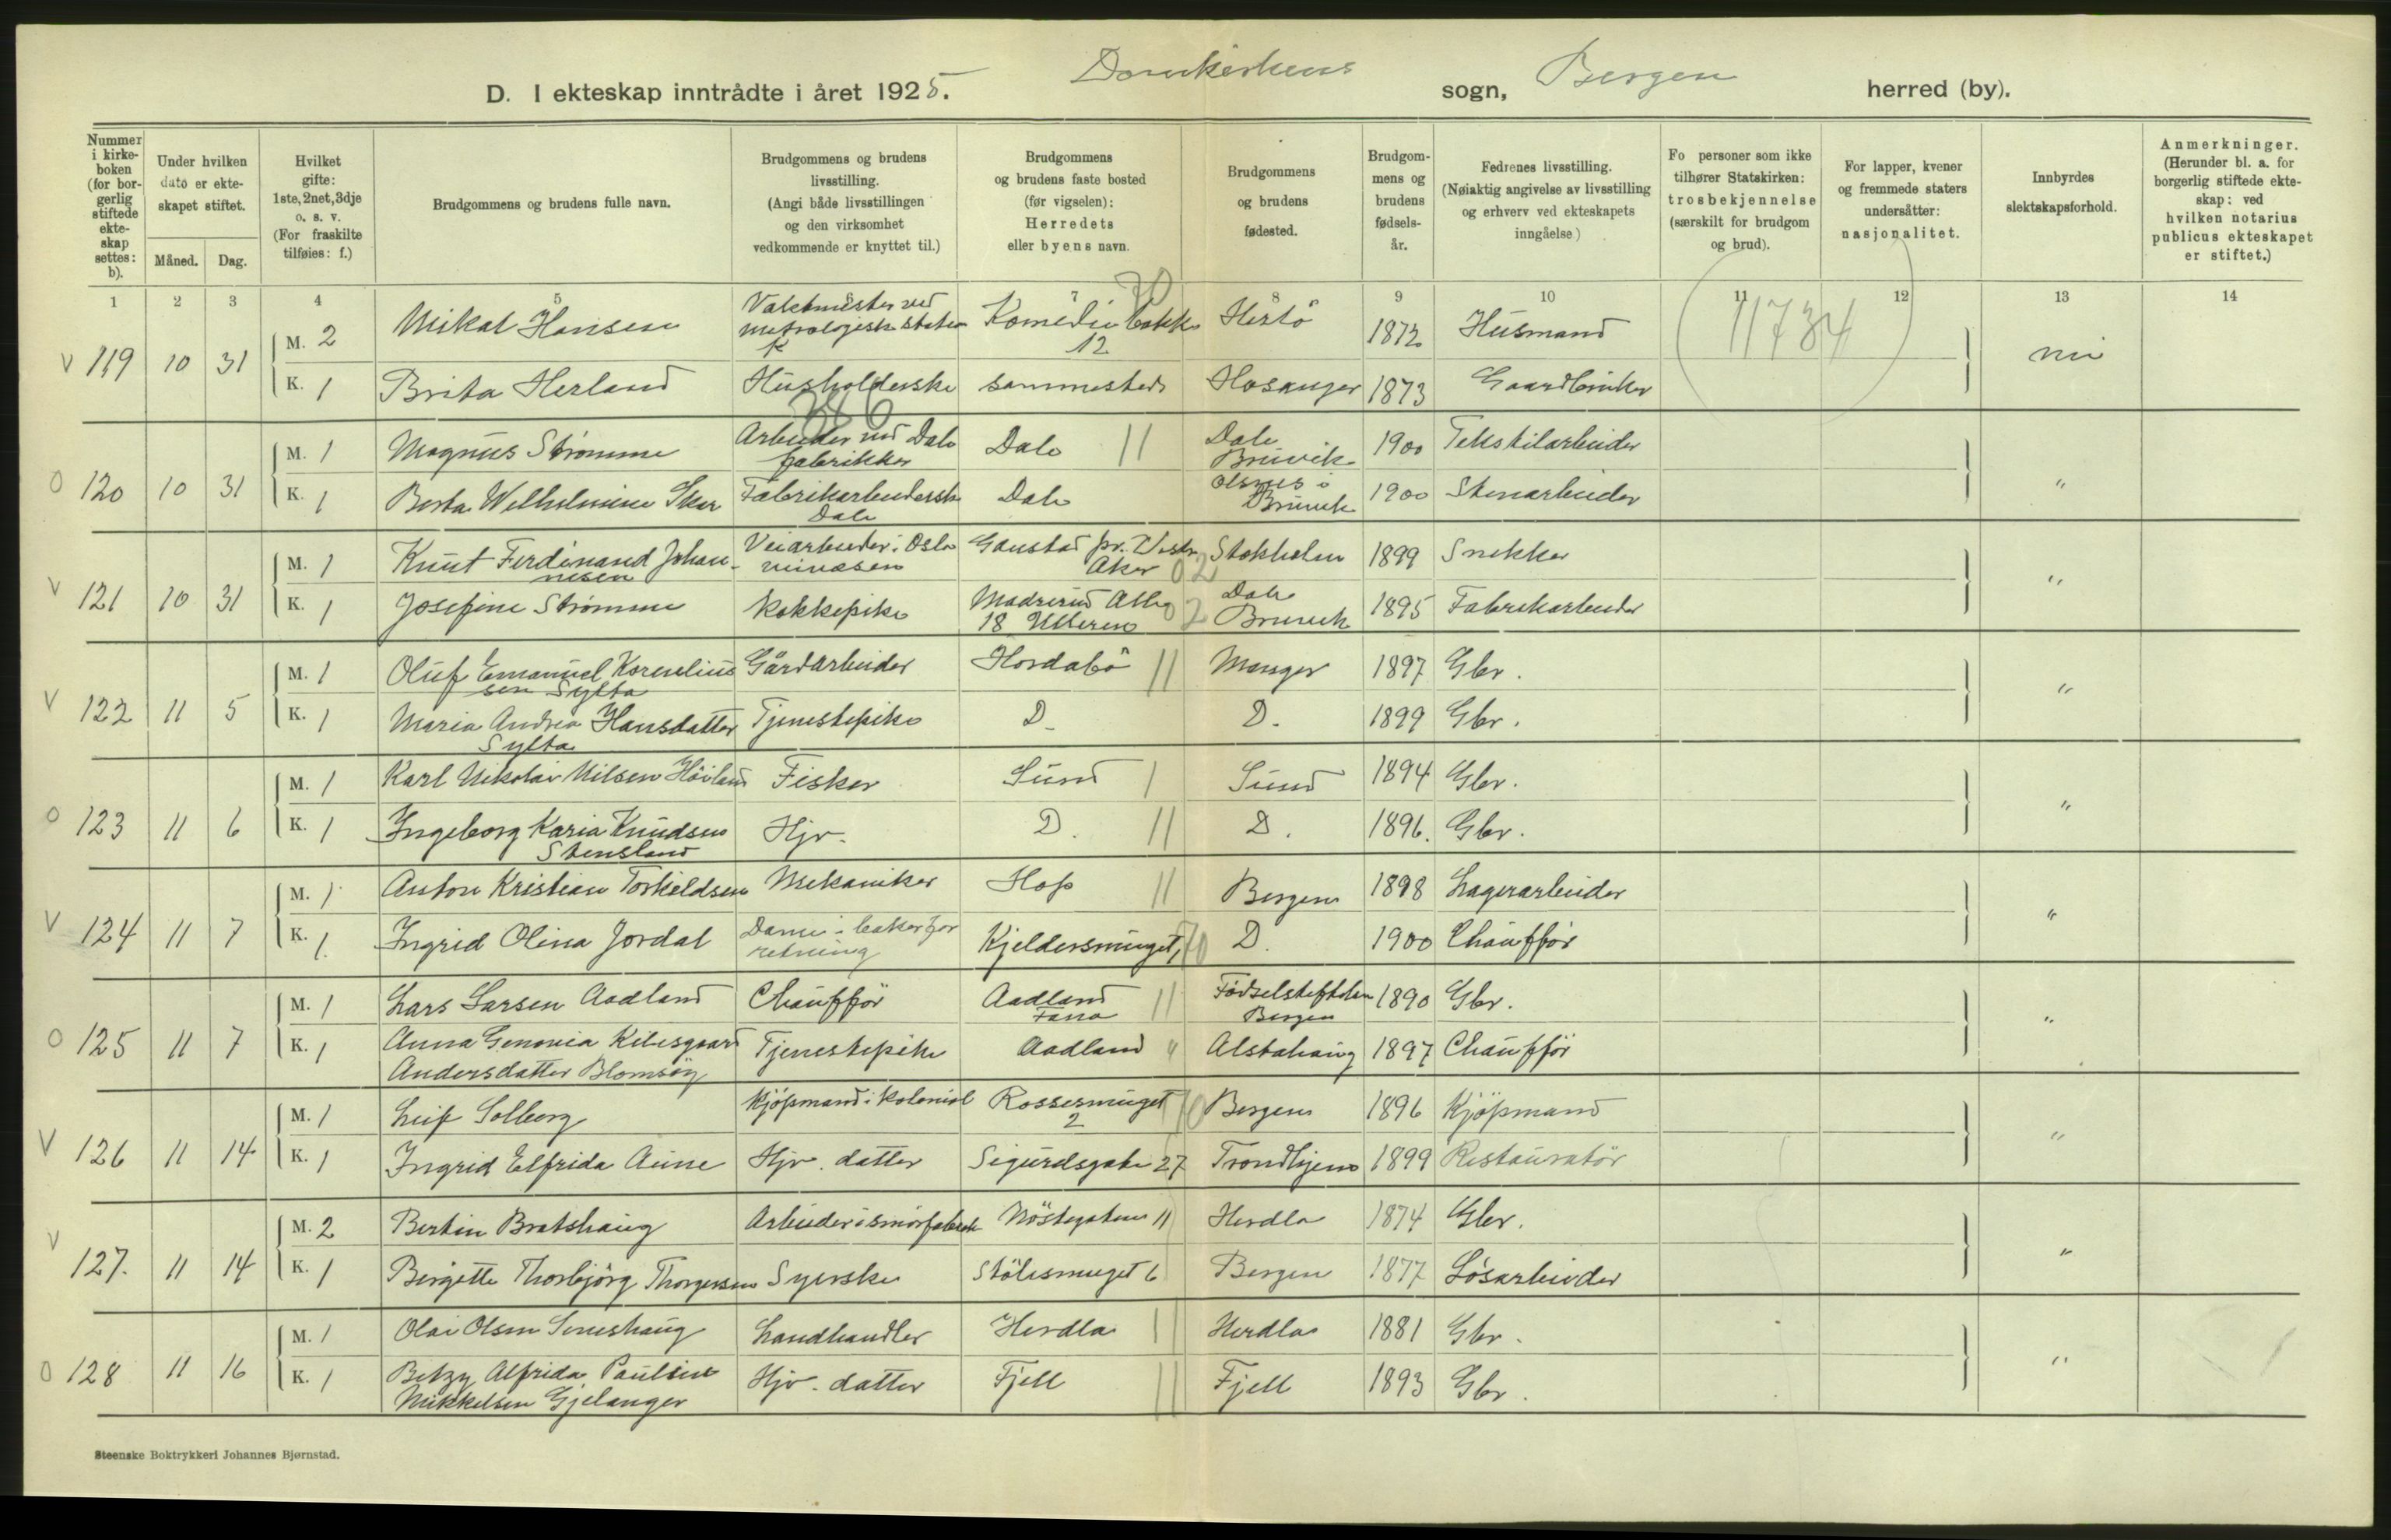 Domkirkens
Bergen
D. I ekteskap inntrådte i året 1925. sogn, herred (by).
Nummer i kirke- boken (for bor- gerlig stiftede ekte- skap settes: b).
Under hvilken dato er ekte- skapet stiftet.
Måned. Dag.
Hvilket gifte: 1ste, 2net, 3dje o. s. v. (For fraskilte tilføies: f.)
Brudgommens og brudens fulle navn.
Brudgommens og brudens livsstilling. (Angi både livsstillingen og den virksomhet vedkommende er knyttet til.)
Brudgommens og brudens faste bosted (før vigselen): Herredets eller byens navn.
Brudgommens og brudens fødested.
Brudgom- mens og brudens fødsels- år.
Fedrenes livsstilling. (Nøiaktig angivelse av livsstilling og erhverv ved ekteskapets inngåelse)
Fo personer som ikke tilhører Statskirken: trosbekjennelse (særskilt for brudgom og brud).
For lapper, kvener og fremmede staters undersåtter: nasjonalitet.
Innbyrdes slektskapsforhold.
Anmerkninger. (Herunder bl. a. for borgerlig stiftede ekte- skap: ved hvilken notarius publicus ekteskapet er stiftet.)
1 2 3 4 5 6 7 8 9 10 11 12 13 14
70
11734
V 119 10 31 M. 2 Mikal Hansen Vaktmester ved metrologiske station Komediebakke 12 Herlö 1872 Husmand nei
K. 1 Brita Herland Husholderske sammesteds Hosanger 1873 Gaardbruker
386
O 120 10 31 M. 1 Magnus Strømme Arbeider ved Dale fabrikker Dale 11 Dale Bruvik 1900 Tekstilarbeider "
K. 1 Berta Welhelmine Skar Fabrikarbeiderske Dale Dale Olsnes i Bruvik 1900 Stenarbeider
V 121 10 31 M. 1 Knut Ferdinand Johan- nesen Veiarbeider i Oslo veivæsen Gaustad pr. Vestre Aker 02 Stokholm 1899 Snekker "
K. 1 Josefine Strømme Kokkepike Madserud Alle 18 Ulleren 02 Dale Bruvik 1895 Fabrikarbeider
V 122 11 5 M. 1 Oluf Emanuel Kornelius sen Sylta Gårdarbeider Hordabö 11 Manger 1897 Gbr. "
K. 1 Maria Andrea Hansdatter Sylta Tjenestepike D D. 1899 Gbr.
O 123 11 6 M. 1 Karl Nikolai Nilsen Höiland Fisker Sund 1 Sund 1894 Gbr. "
K. 1 Ingeborg Karia Knudsen Stensland Hjv. D. 11 D. 1896. Gbr.
V 124 11 7 M. 1 Anton Kristian Torkildsen Mekaniker Hop 11 Bergen 1898 Lagerarbeider "
K. 1. Ingrid Olina Jordal Dame i bakerfor retning Kjeldersmuget 70 D. 1900 Chauffør
O 125 11 7 M. 1 Lars Larsen Aadland Chauffør Aadland Fana 11 Födselstiftelsen Bergen 1890 Gbr. "
K. 1 Anna Kilesgaard Andersdatter Blomsöy Tjenestepike Aadland " Alstahaug 1897 Chauffør
V 126 11 14 M. 1 Leif Solberg Kjöpmand i kolonial Rossesmuget 2 70 Bergen 1896 Kjöpmand "
K. 1 Ingrid Elfrida Aune Hjv. datter Sigurdsgate 27 Trondhjem 1899 Restauratör
V 127. 11 14 M. 2 Bertin Bratshaug Arbeider i smörfabrik Nöstegaten 11 Herdla 1874 Gbr. "
K. 1 Birgitte Thorbjörg Thorgersen Syerske Stölesmuget 6 Bergen 1877 Lösarbeider
O 128 11 16 M. 1 Olai Olsen Landhandler Herdla 11 Herdla 1881 Gbr. "
K. 1 Betzy Alfrida Pauline Mikkelsen Gjelanger Hjv. datter Fjell 11 Fjell 1893 Gbr.
Steenske Boktrykkeri Johannes Bjørnstad.